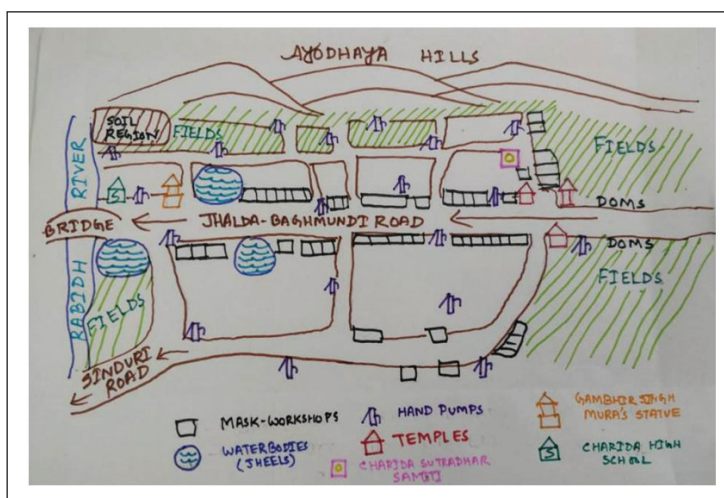 AYODHAYA HILLS
SOIL
REGION
FIELDS
FIELDS
RIVER
S
DOMS
BRIDGE
JHALDA-BAGHMUNDI ROAD
DOMS
RABIDH
FIELDS
FIELDS
SINDURI
ROAD
MASK-WORKSHOPS
HAND PUMPS
GAMBHIR SINGH
MURA'S STATUE
WATERBODIES
(JHEELS)
TEMPLES
S
CHARIDA HIGH
SCHOOL
CHARIDA SUTRADHAR
SAMITI